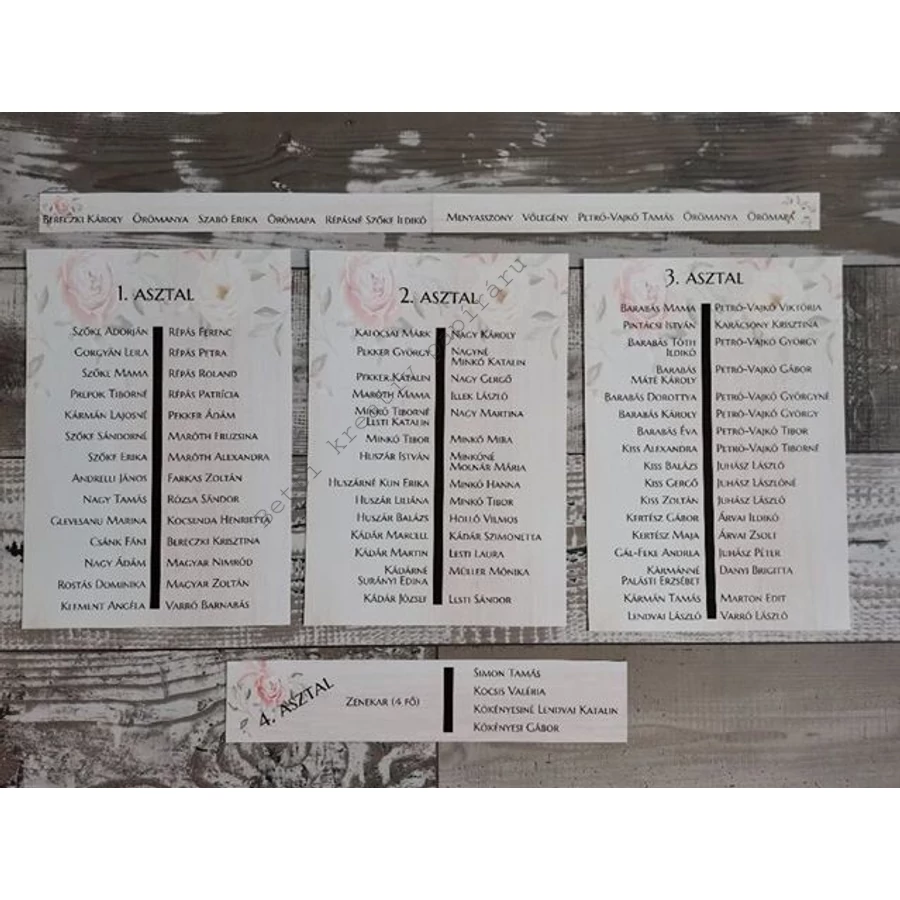 Bereczki Károly Örömanya Szabó Erika Örömapa Répásné Szőke Ildikó Menyasszony Vőlegény Petró-Vajkó Tamás Örömanya Örömapa
1. asztal
Szőke Adorján
Gorgyán Leila
Szőke Mama
Prepok Tiborné
Kármán Lajosné
Szőke Sándorné
Szőke Erika
Andrelli János
Nagy Tamás
Glevesanu Marina
Csánk Fáni
Nagy Ádám
Rostás Dominika
Klement Angéla
Répás Ferenc
Répás Petra
Répás Roland
Répás Patrícia
Pekker Ádám
Maróth Fruzsina
Maróth Alexandra
Farkas Zoltán
Rózsa Sándor
Kocsenda Henrietta
Bereczki Krisztina
Magyar Nimród
Magyar Zoltán
Varró Barnabás
2. asztal
Kalocsai Márk
Pekker György
Pekker Katalin
Maróth Mama
Minkó Tiborné
Lesti Katalin
Minkó Tibor
Huszár István
Huszárné Kun Erika
Huszár Liliána
Huszár Balázs
Kádár Marcell
Kádár Martin
Kádárné
Surányi Edina
Kádár József
Nagy Károly
Nagyné
Minkó Katalin
Nagy Gergő
Illek László
Nagy Martina
Minkó Mira
Minkóné
Molnár Mária
Minkó Hanna
Minkó Tibor
Holló Vilmos
Kádár Szimonetta
Lesti Laura
Müller Mónika
Lesti Sándor
3. asztal
Barabás Mama
Pintácsi István
Barabás Tóth
Ildikó
Barabás
Máté Károly
Barabás Dorottya
Barabás Károly
Barabás Éva
Kiss Alexandra
Kiss Balázs
Kiss Gergő
Kiss Zoltán
Kertész Gábor
Kertész Maja
Gál-Feke Andrea
Kármánné
Palásti Erzsébet
Kármán Tamás
Lendvai László
Petró-Vajkó Viktória
Karácsony Krisztina
Petró-Vajkó György
Petró-Vajkó Gábor
Petró-Vajkó Györgyné
Petró-Vajkó György
Petró-Vajkó Tibor
Petró-Vajkó Tiborné
Juhász László
Juhász Lászlóné
Juhász László
Árvai Ildikó
Árvai Zsolt
Juhász Péter
Danyi Brigitta
Marton Edit
Varró László
4. asztal
Zenekar (4 fő)
Simon Tamás
Kocsis Valéria
Kökényesiné Lendvai Katalin
Kökényesi Gábor
Betti kreatív papíráru